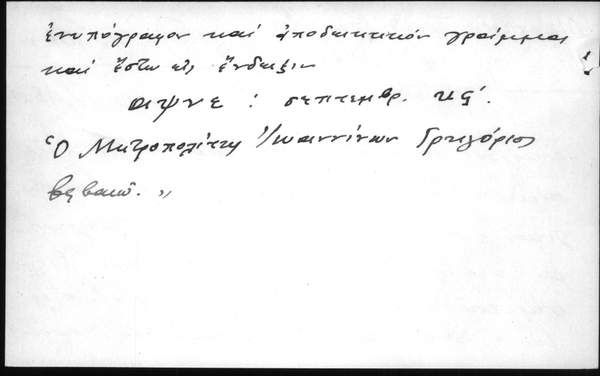 ἐνυπόγραφον καί ἀποδεικτικόν γράμμα
καί ἔστω εἰς ἔνδειξιν
αψνε : σεπτεμβρ. κς΄.
Ὁ Μητροπολίτης Ἰωαννίνων Γρηγόριος
βεβαιοῖ. „